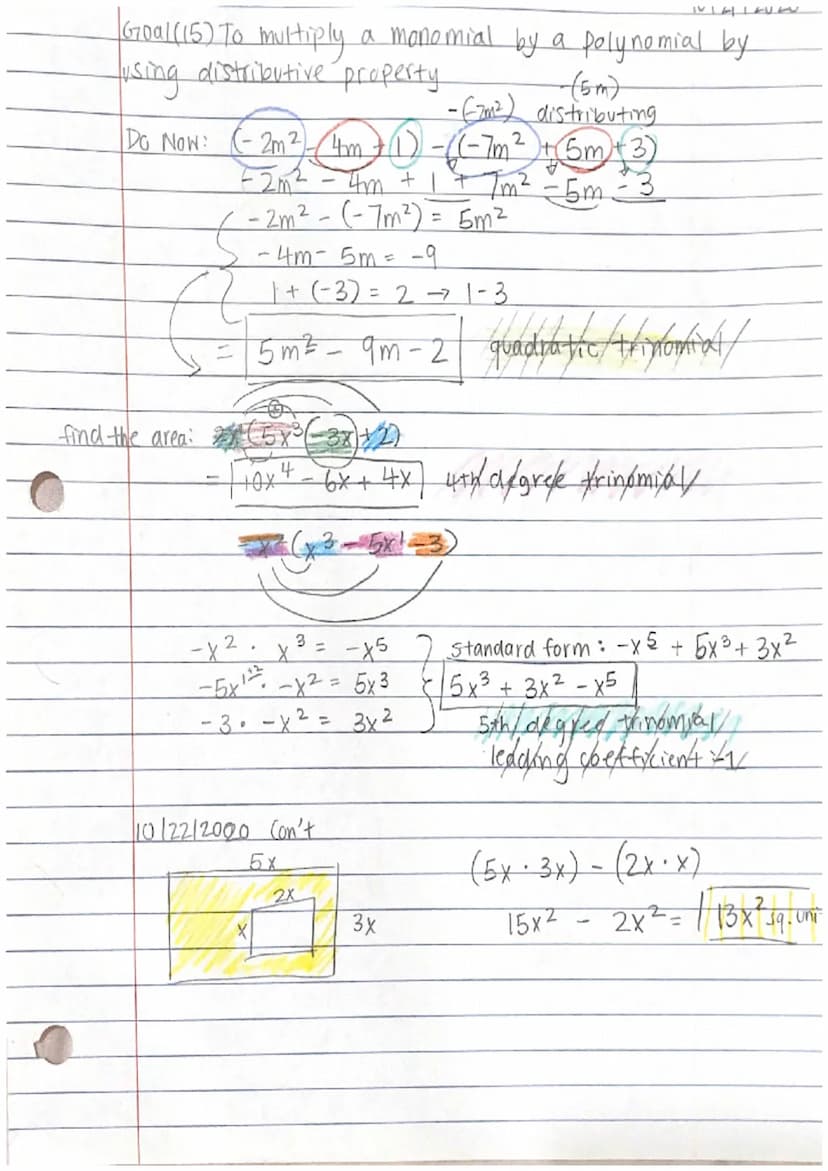 Goal(15) To multiply a monomial by a polynomial by
using distributive property
-(-7m²) -(5m) distributing
Do Now: (-2m² - 4m + 1) - (-7m² + 5m + 3)
-2m² - 4m + 1 + 7m² - 5m - 3
-2m² - (-7m²) = 5m²
-4m - 5m = -9
1 + (-3) = 2 → 1-3
= 5m² - 9m - 2 quadratic trinomial
find the area: (5x³ - 3x + 2)
= 10x⁴ - 6x + 4x 4th degree trinomial
-x² (x³ - 5x¹ - 3)
-x² · x³ = -x⁵ standard form: -x⁵ + 5x³ + 3x²
-5x¹⁺² · -x² = 5x³ 5x³ + 3x² - x⁵
-3 · -x² = 3x² 5th degree trinomial
leading coefficient -1
10/22/2020 Con't
5x (5x · 3x) - (2x · x)
2x
x 3x 15x² - 2x² = 13x² sq. uni